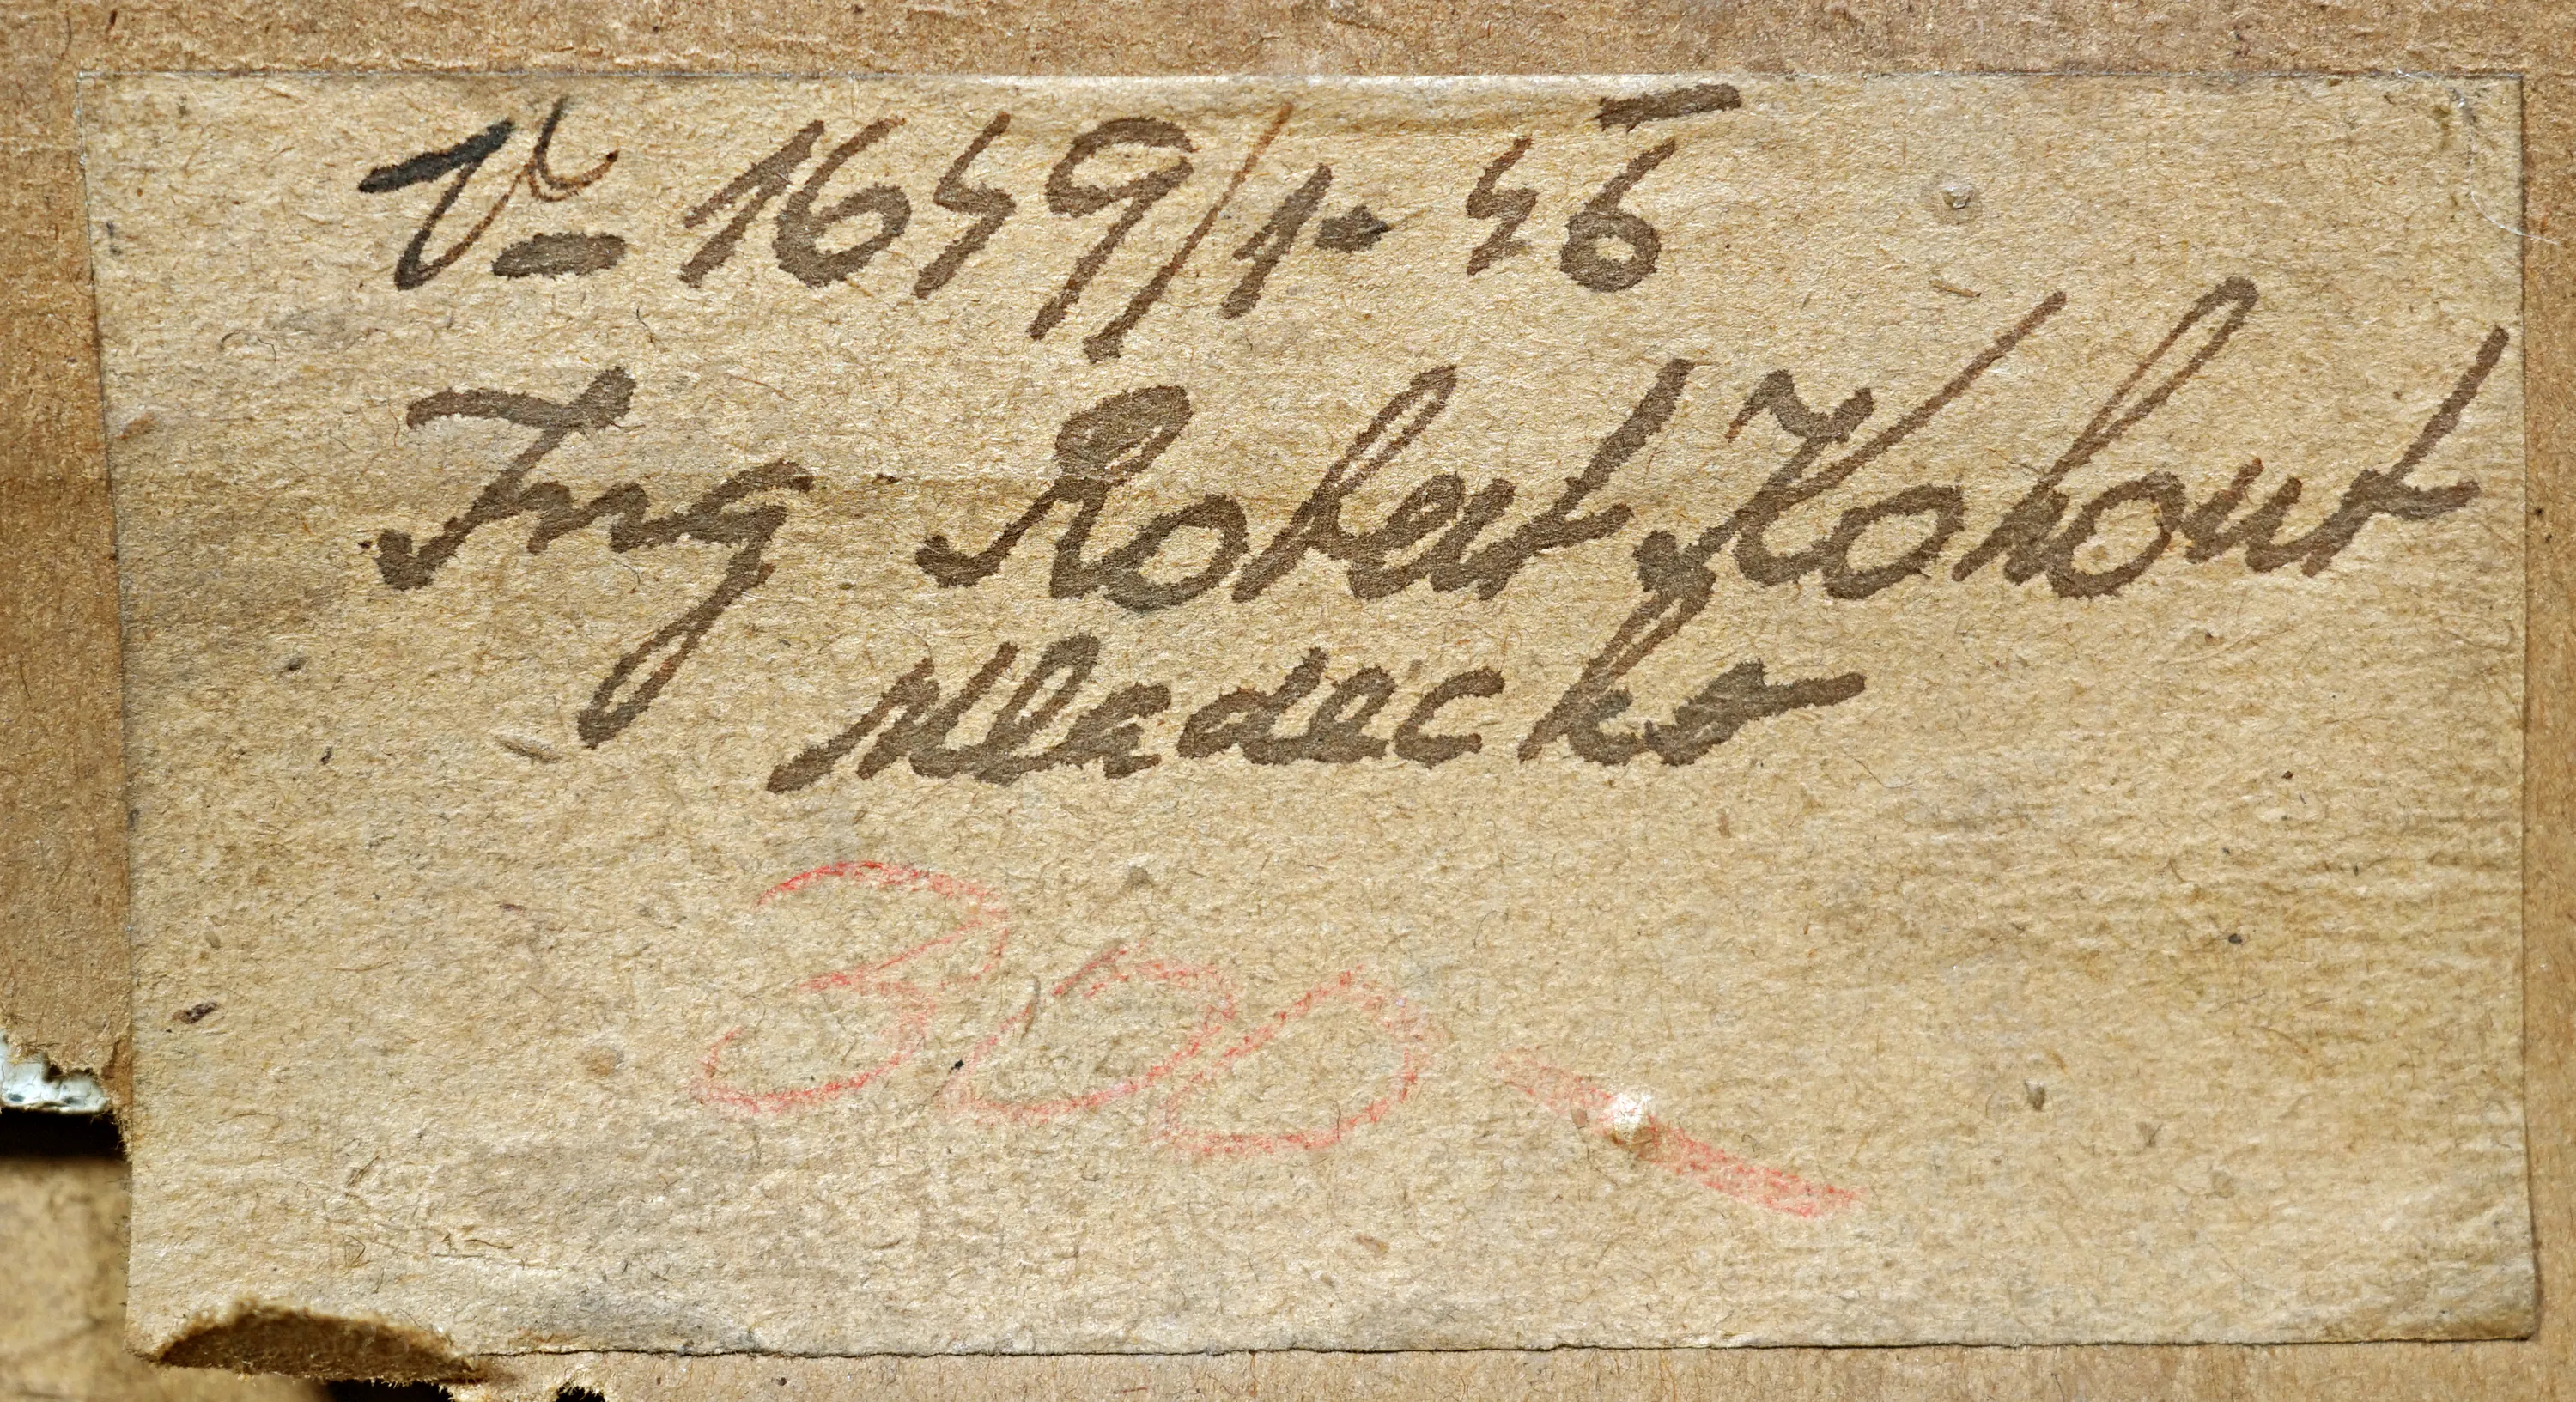 V- 1649/1- 45
Ing Robert Kohout
Mladecko
300 -